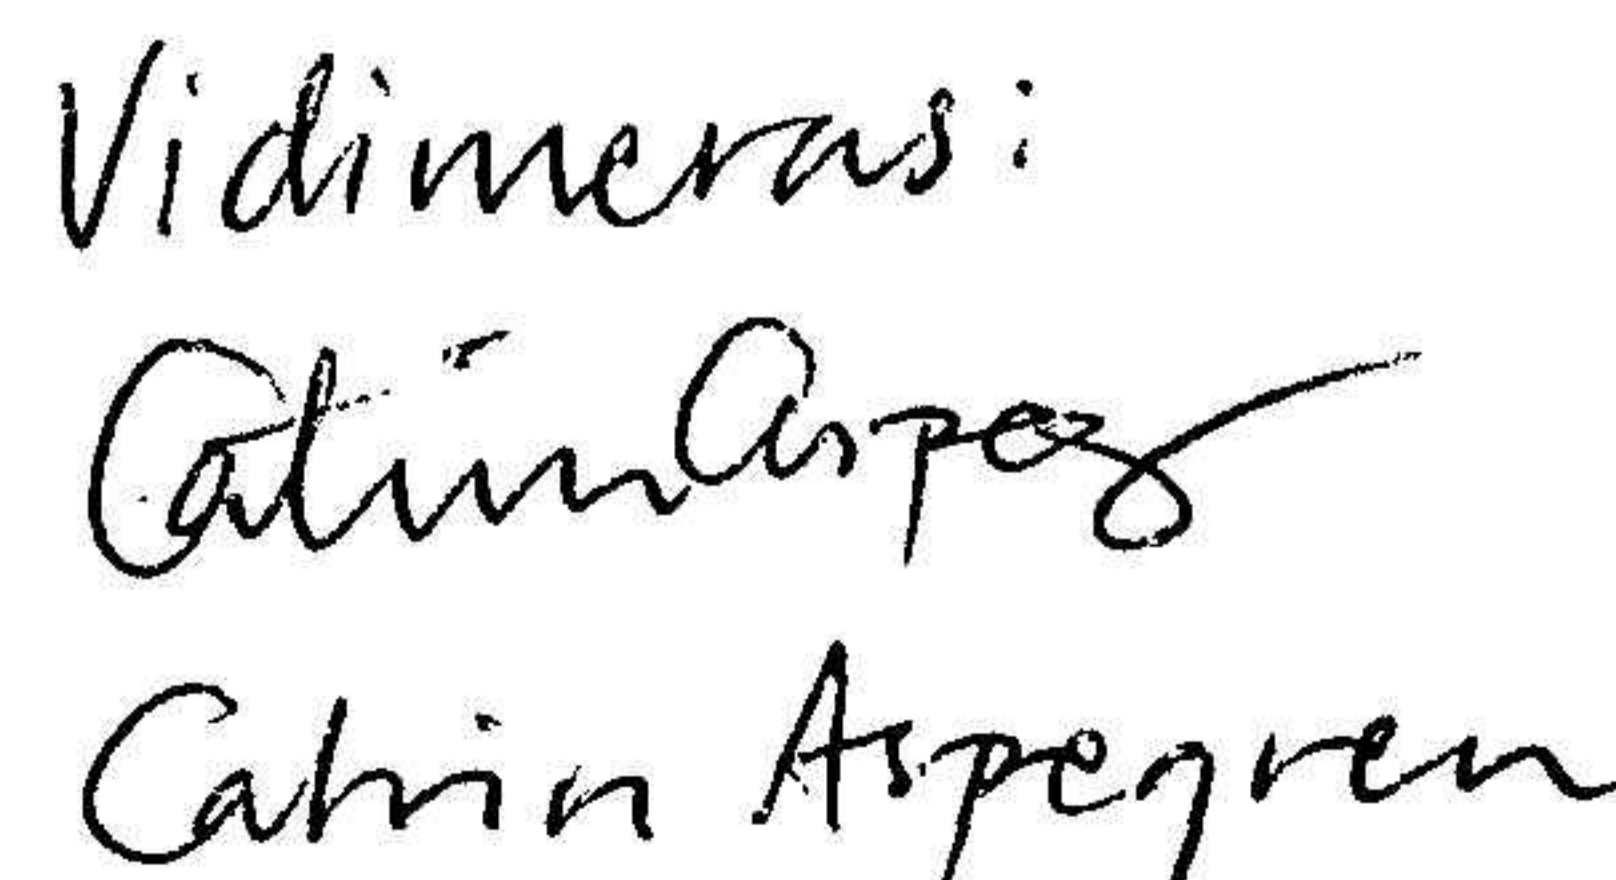 Vidimeras:
Catrin Aspeg
Catrin Aspegren